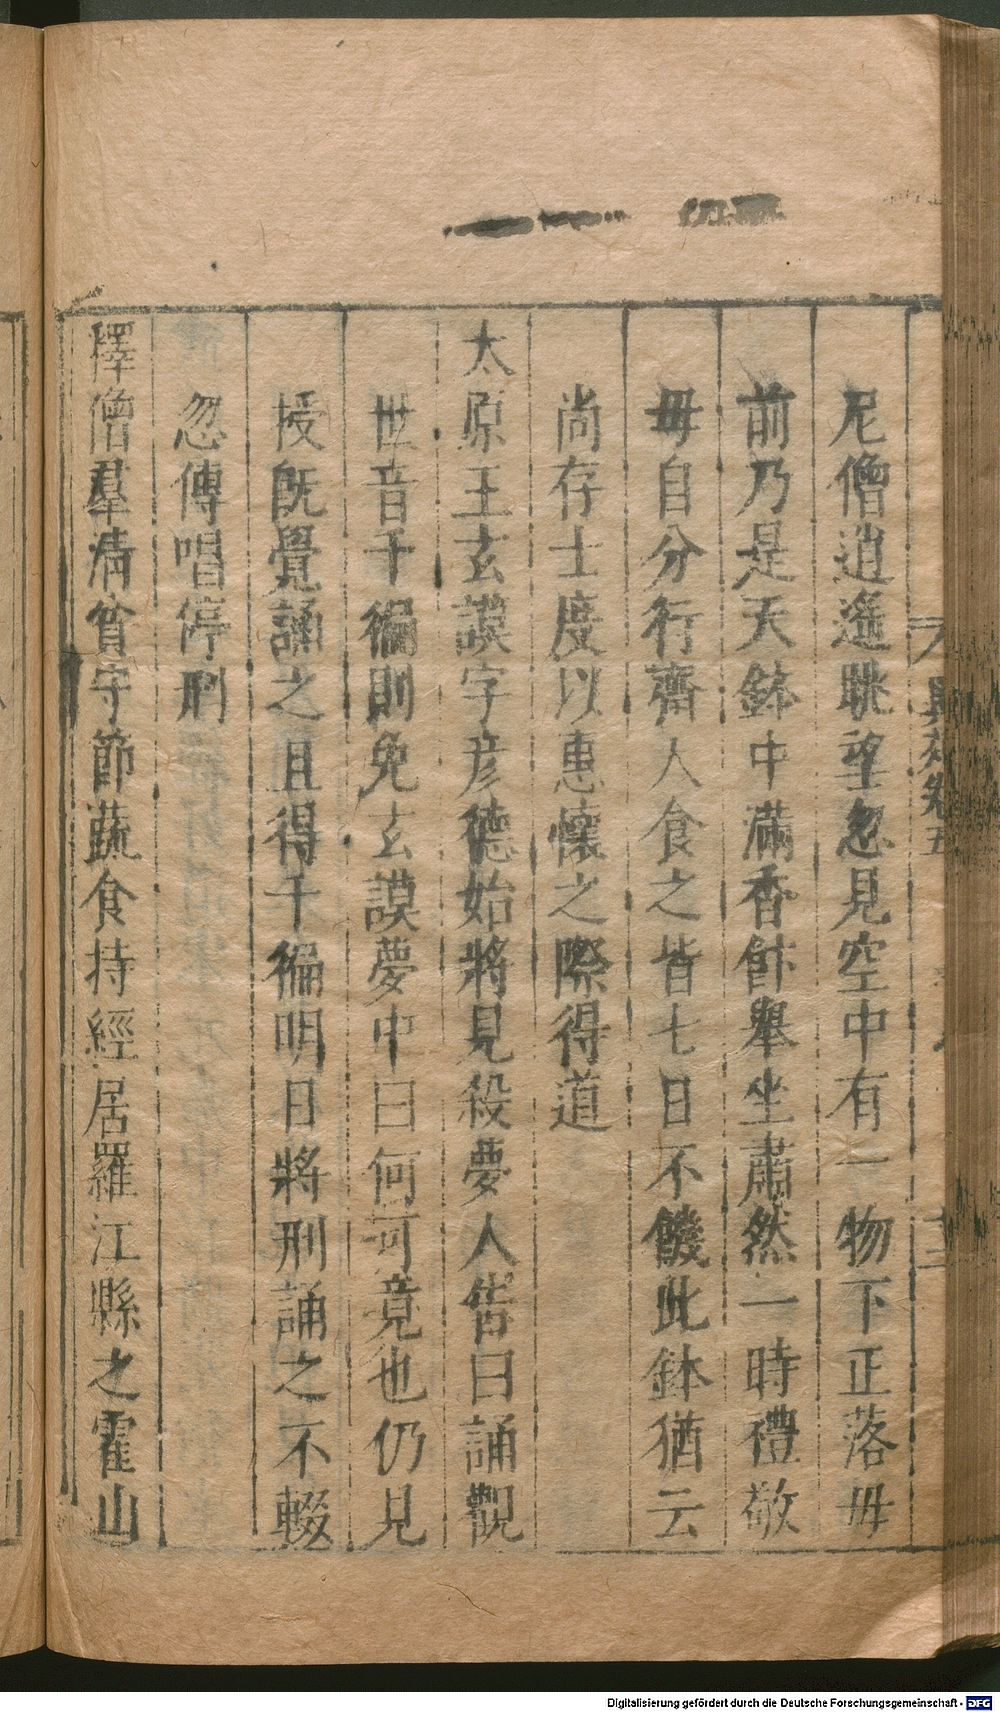 尼僧逍遙眺望忽見空中有一物下正落毋
前乃是天鉢中滿香飰舉坐肅然一時禮敬
毋自分行齋人食之皆七日不饑此鉢猶云
尚存士度以惠懷之際得道
太原王玄謨字彥德始將見殺夢人告曰誦觀
世音千徧則免玄謨夢中曰何可竟也仍見
授旣覺誦之且得千徧明日將刑誦之不輟
忽傳唱停刑
釋僧羣淸貧守節蔬食持經居羅江縣之霍山
異苑卷五
Digitalisierung gefördert durch die Deutsche Forschungsgemeinschaft - DFG